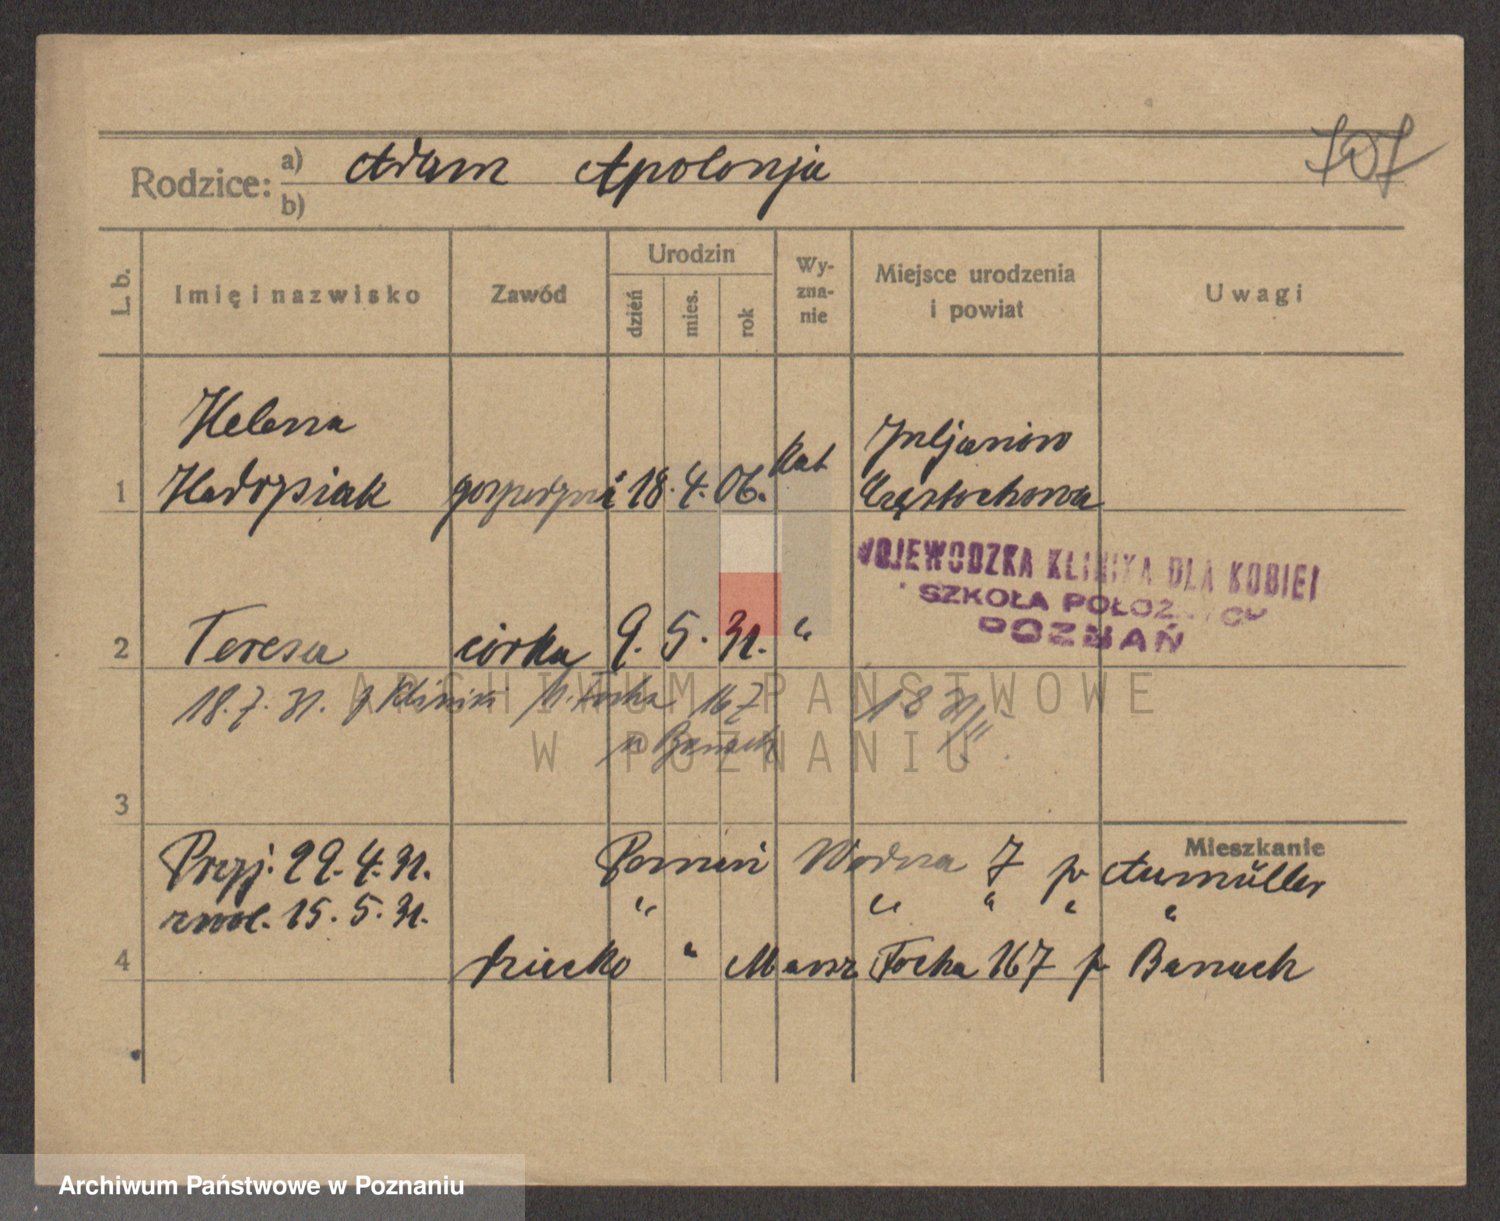 707
Rodzice: a) Adam Apolonja
b)
L. b.
Imię i nazwisko
Zawód
Urodzin
dzień
mies.
rok
Wy-
zna-
nie
Miejsce urodzenia
i powiat
Uwagi
Helena
1 gospodyni 18. 4. 06. kat
Juljanów
Częstochowa
WOJEWODZKA KLINIKA DLA KOBIET
SZKOŁA POŁOŻNYCH
POZNAŃ
2 Teresa córka 9. 5. 31. "
18.7.31. z Kliniki M. Focha 167
u Banach
ARCHIWUM PAŃSTWOWE
W POZNANIU
3
Mieszkanie
Przyj. 29. 4. 31. Poznań Wodna 7 p. Aumüller
zwol. 15. 5. 31. " " " " "
4 dziecko " Marsz Focha 167 p Banach
Archiwum Państwowe w Poznaniu